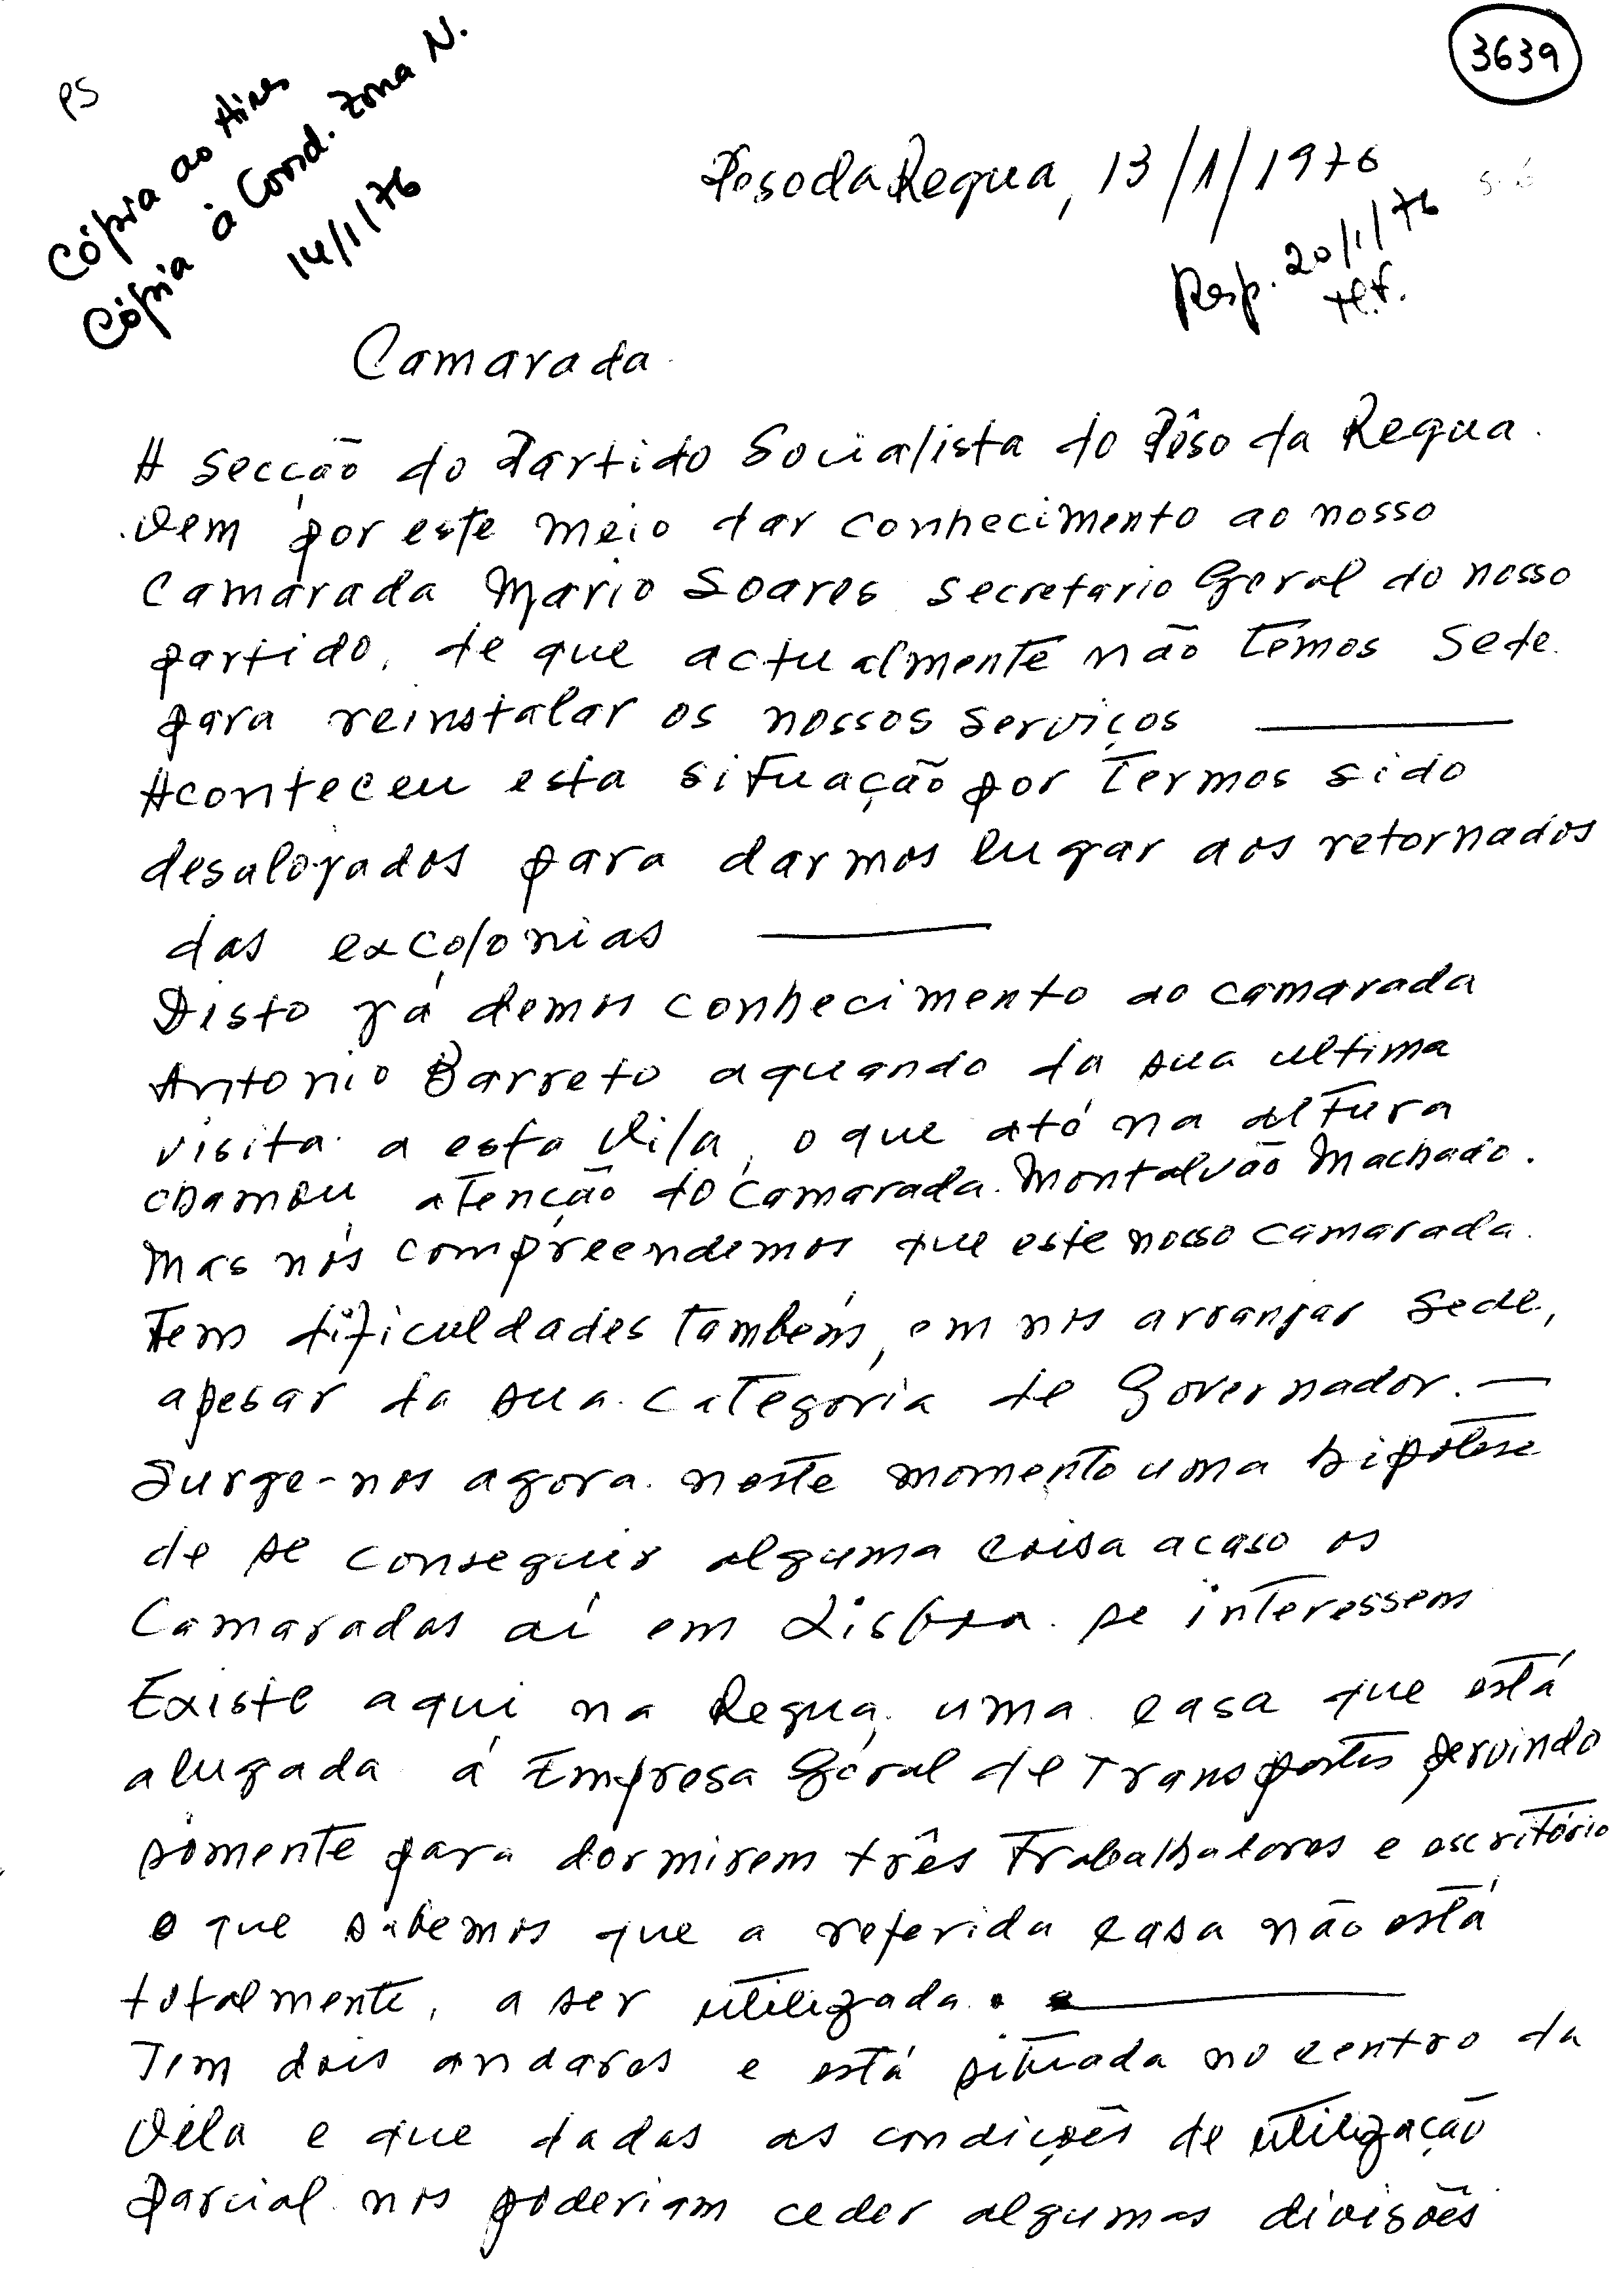 3639
PS
Cópia ao Aires
Cópia à Coord. Zona N.
14/1/76
Peso da Regua, 13/1/1976
Resp. 20/1/76
tef.
Camarada
A secção do Partido Socialista do Pêso da Regua
vem por este meio dar conhecimento ao nosso
Camarada Mario Soares secretario Geral do nosso
partido, de que actualmente não temos Sede
para reinstalar os nossos serviços ———
Aconteceu esta situação por termos sido
desalojados para darmos lugar aos retornados
das excolonias ———
Disto já demos conhecimento ao camarada
Antonio Barreto aquando da sua ultima
visita a esta Vila, o que até na altura
chamou atenção do Camarada Montalvão Machado.
Mas nós compreendemos que este nosso camarada
Tem dificuldades também, em nos arranjar Sede,
apesar da sua categoria de Governador. —
Surge-nos agora neste momento uma hipótese
de se conseguir alguma coisa acaso os
Camaradas aí em Lisboa se interessem
Existe aqui na Regua uma casa que está
alugada á Empresa Geral de Transportes servindo
sómente para dormirem três trabalhadores e escritório
o que sabemos que a referida casa não está
totalmente, a ser utilizada. ———
Tem dois andares e está situada no centro da
Vila e que dadas as condições de utilização
parcial nos poderiam ceder algumas divisões